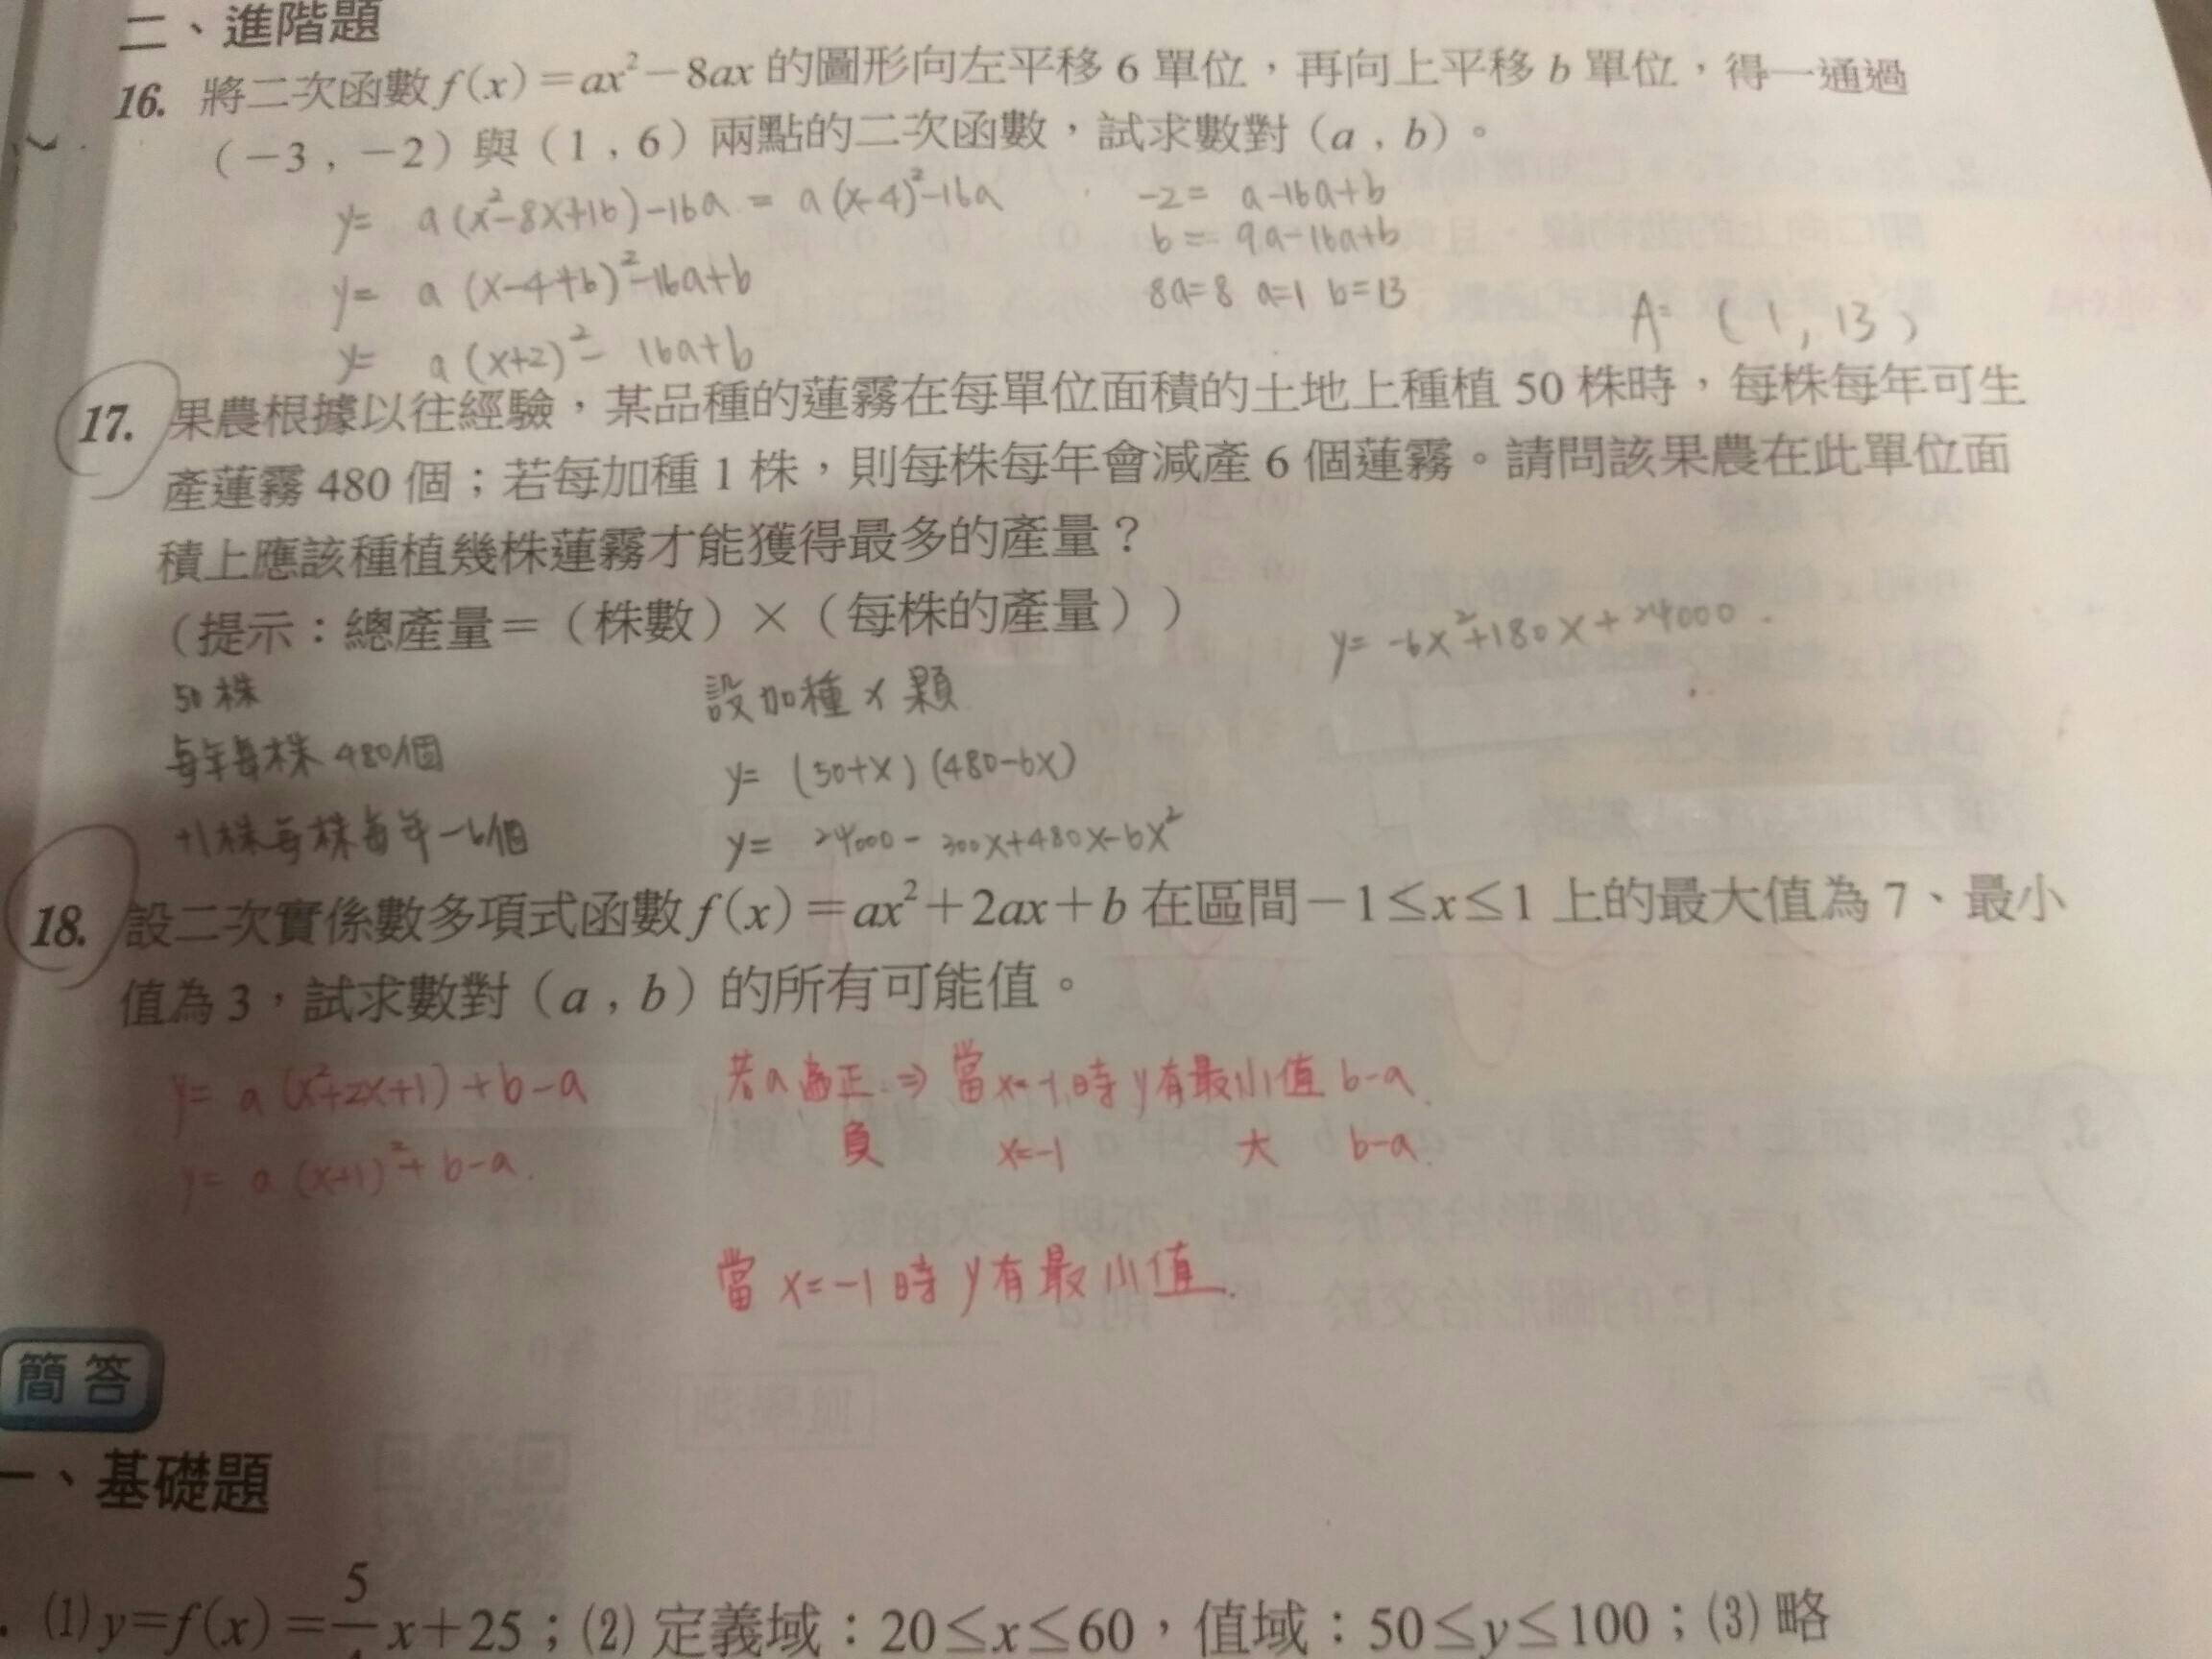 二、進階題
16. 將二次函數 f(x)=ax²-8ax 的圖形向左平移 6 單位,再向上平移 b 單位,得一通過
(-3,-2)與(1,6)兩點的二次函數,試求數對(a,b)。
y= a(x²-8x+16)-16a = a(x-4)²-16a
y= a(x-4+6)²-16a+b
y= a(x+2)²-16a+b
-2= a-16a+b
6= 9a-16a+b
8a=8 a=1 b=13
A=(1,13)
17. 果農根據以往經驗,某品種的蓮霧在每單位面積的土地上種植 50 株時,每株每年可生
產蓮霧 480 個;若每加種 1 株,則每株每年會減產 6 個蓮霧。請問該果農在此單位面
積上應該種植幾株蓮霧才能獲得最多的產量?
(提示:總產量=(株數)×(每株的產量))
50株
每年每株 480個
+1株每株每年-6個
設加種 x 顆
y= (50+x)(480-6x)
y= 24000-300x+480x-6x²
y= -6x²+180x+24000
18. 設二次實係數多項式函數 f(x)=ax²+2ax+b 在區間-1≤x≤1 上的最大值為 7、最小
值為 3,試求數對(a,b)的所有可能值。
y= a(x²+2x+1)+b-a
y= a(x+1)²+b-a.
若a為正⇒當x=-1時y有最小值 b-a.
負 x=-1 大 b-a.
當 x=-1 時 y有最小值.
簡答
一、基礎題
(1) y=f(x)=5/4x+25;(2) 定義域:20≤x≤60,值域:50≤y≤100;(3) 略